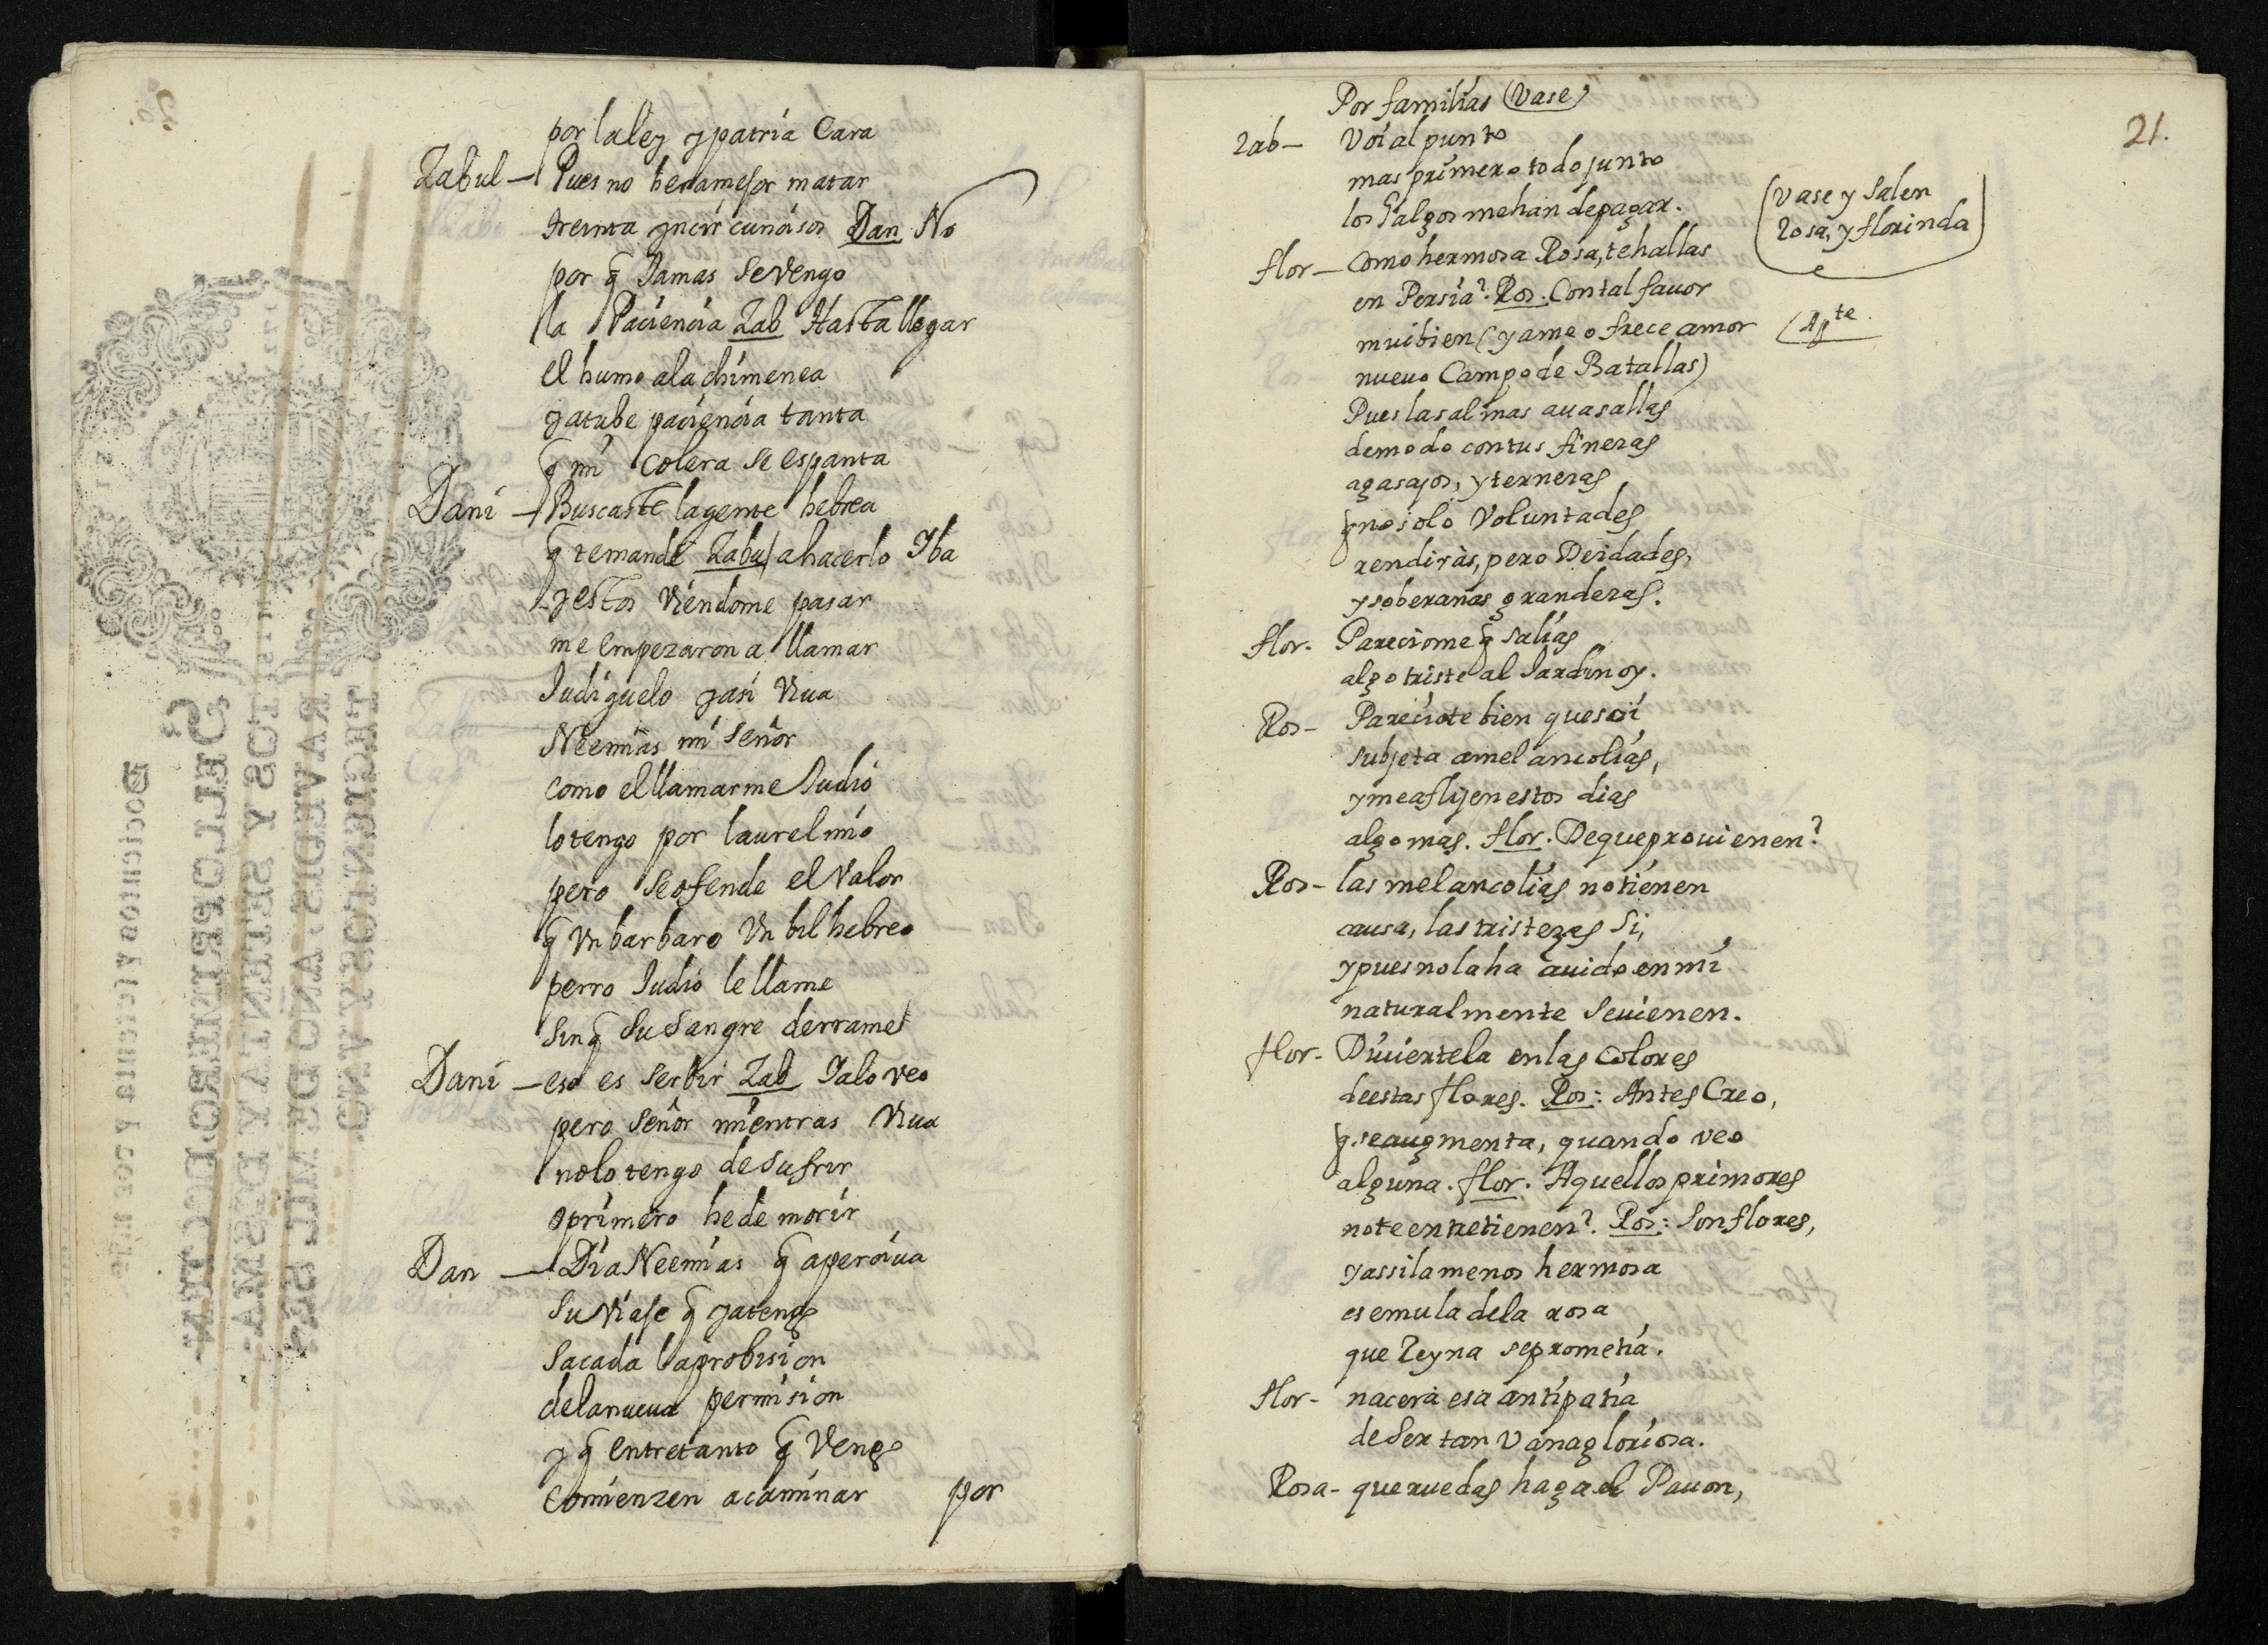 por la ley y patria Cara
Zabul — Pues no hera mejor matar
treinta yncircuncisos Dan No
por q̃ Jamas se vengo
la Paciencia Zab Hasta llegar
el humo a la chimenea
ya tube paciencia tanta
q̃ mi Colera se espanta
Dani — Buscaste la gente hebrea
q̃ te mande Zabul a hacerlo Iba
y estos viendome pasar
me empezaron a llamar
Judiguelo y asi viua
Neemias mi señor
como el llamarme Judio
lo tengo por laurel mio
pero se ofende el valor
q̃ vn barbaro vn bil hebreo
perro Judio le llame
sin q̃ su sangre derrame
Dani — eso es serbir Zab Ia lo veo
pero señor mientras viua
no lo tengo de sufrir
o primero he de morir
Dan — Dia Neemias q̃ aperciua
su viaje q̃ ya tengo
sacada la probision
de la nueua permision
y q̃ entretanto q̃ vengo
comienzen a caminar
por
21.
Por familias (Vase)
Zab — Voi al punto
mas primero todo junto
los Galgos me han de pagar.
(Vase y salen
Rosa, y florinda)
flor — Como hermosa Rosa, te hallas
en Persia? Ros. Con tal fauor
mui bien (ya me ofrece amor
(Ap.te
nueuo Campo de Batallas)
Pues las almas auasallas
de modo con tus finezas
agasajos, y ternezas
q̃ no solo Voluntades
rendiràs, pero Deidades,
y soberanas grandezas.
flor. Pareciome q̃ salias
algo triste al Jardin oy.
Ros — Pareciote bien que soi
subjeta a melancolias,
y me aflijen estos dias
algo mas. flor. De que prouienen?
Ros — las melancolias no tienen
causa, las tristezas si,
y pues no la ha auido en mi
naturalmente se uienen.
flor — Diuiertela en las colores
de estas flores. Ros: Antes Creo,
q̃ se augmenta, quando veo
alguna. flor. Aquellos primores
no te entretienen? Ros: Son flores,
y assi la menos hermosa
es emula de la rosa
que Reyna se prometia.
flor — nacerà esa antipatia
de Ser tan Vanagloriosa.
Rosa — que ruedas haga el Pauon,